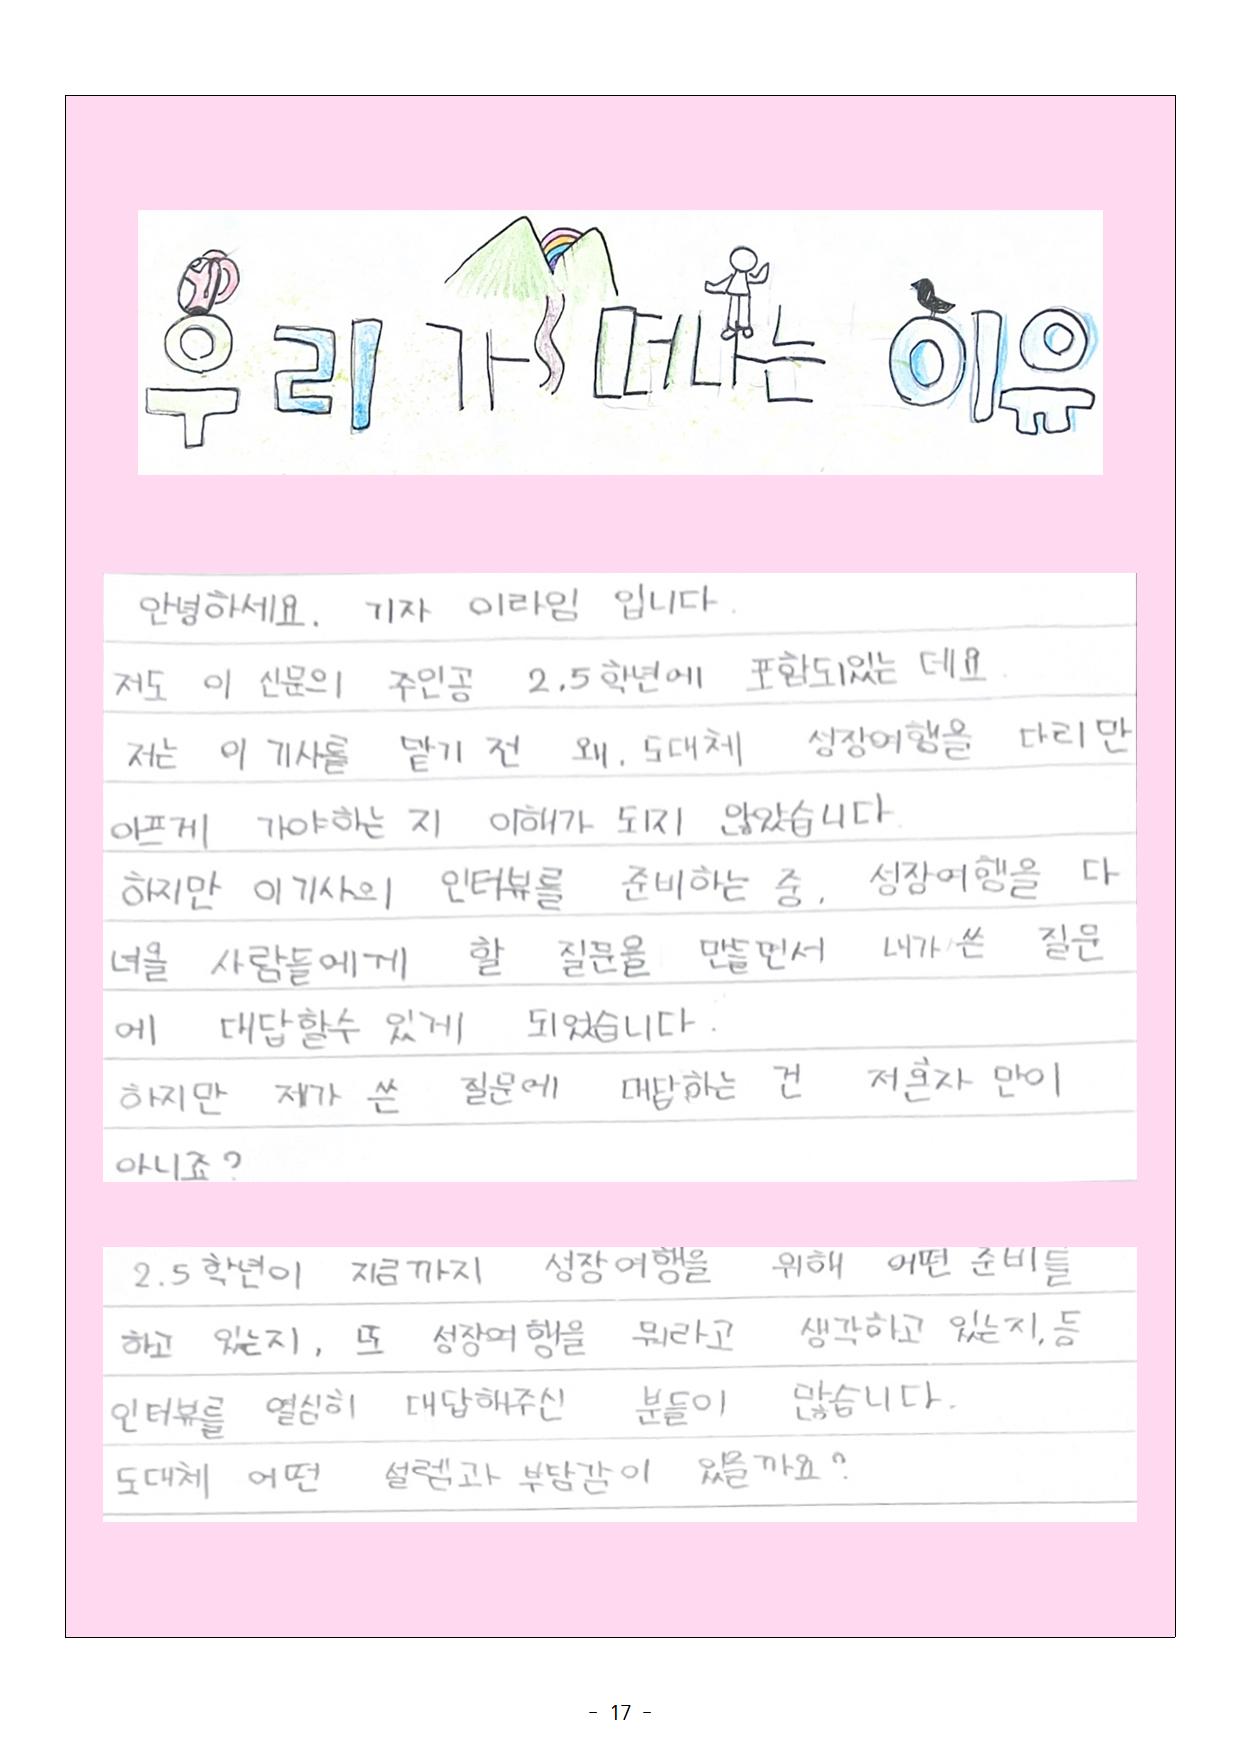 우리가 떠나는 이유
안녕하세요. 기자 이라임 입니다.
저도 이 신문의 주인공 2.5학년에 포함되있는 데요.
저는 이 기사를 맡기 전 왜, 도대체 성장여행을 다리만
아프게 가야하는 지 이해가 되지 않았습니다.
하지만 이 기사의 인터뷰를 준비하는 중, 성장여행을 다
녀올 사람들에게 할 질문을 만들면서 내가 쓴 질문
에 대답할수 있게 되었습니다.
하지만 제가 쓴 질문에 대답하는 건 저혼자 만이
아니죠?
2.5학년이 지금까지 성장여행을 위해 어떤 준비들
하고 있는지, 또 성장여행을 뭐라고 생각하고 있는지, 등
인터뷰를 열심히 대답해주신 분들이 많습니다.
도대체 어떤 설렘과 부담감이 있을까요?
- 17 -